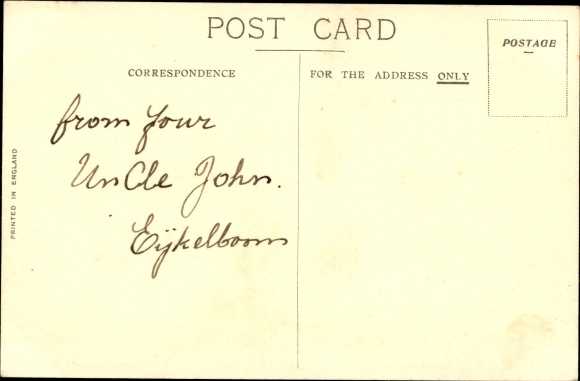 POST CARD
POSTAGE
CORRESPONDENCE
FOR THE ADDRESS ONLY
from your
Uncle John.
Eijkelboom
PRINTED IN ENGLAND